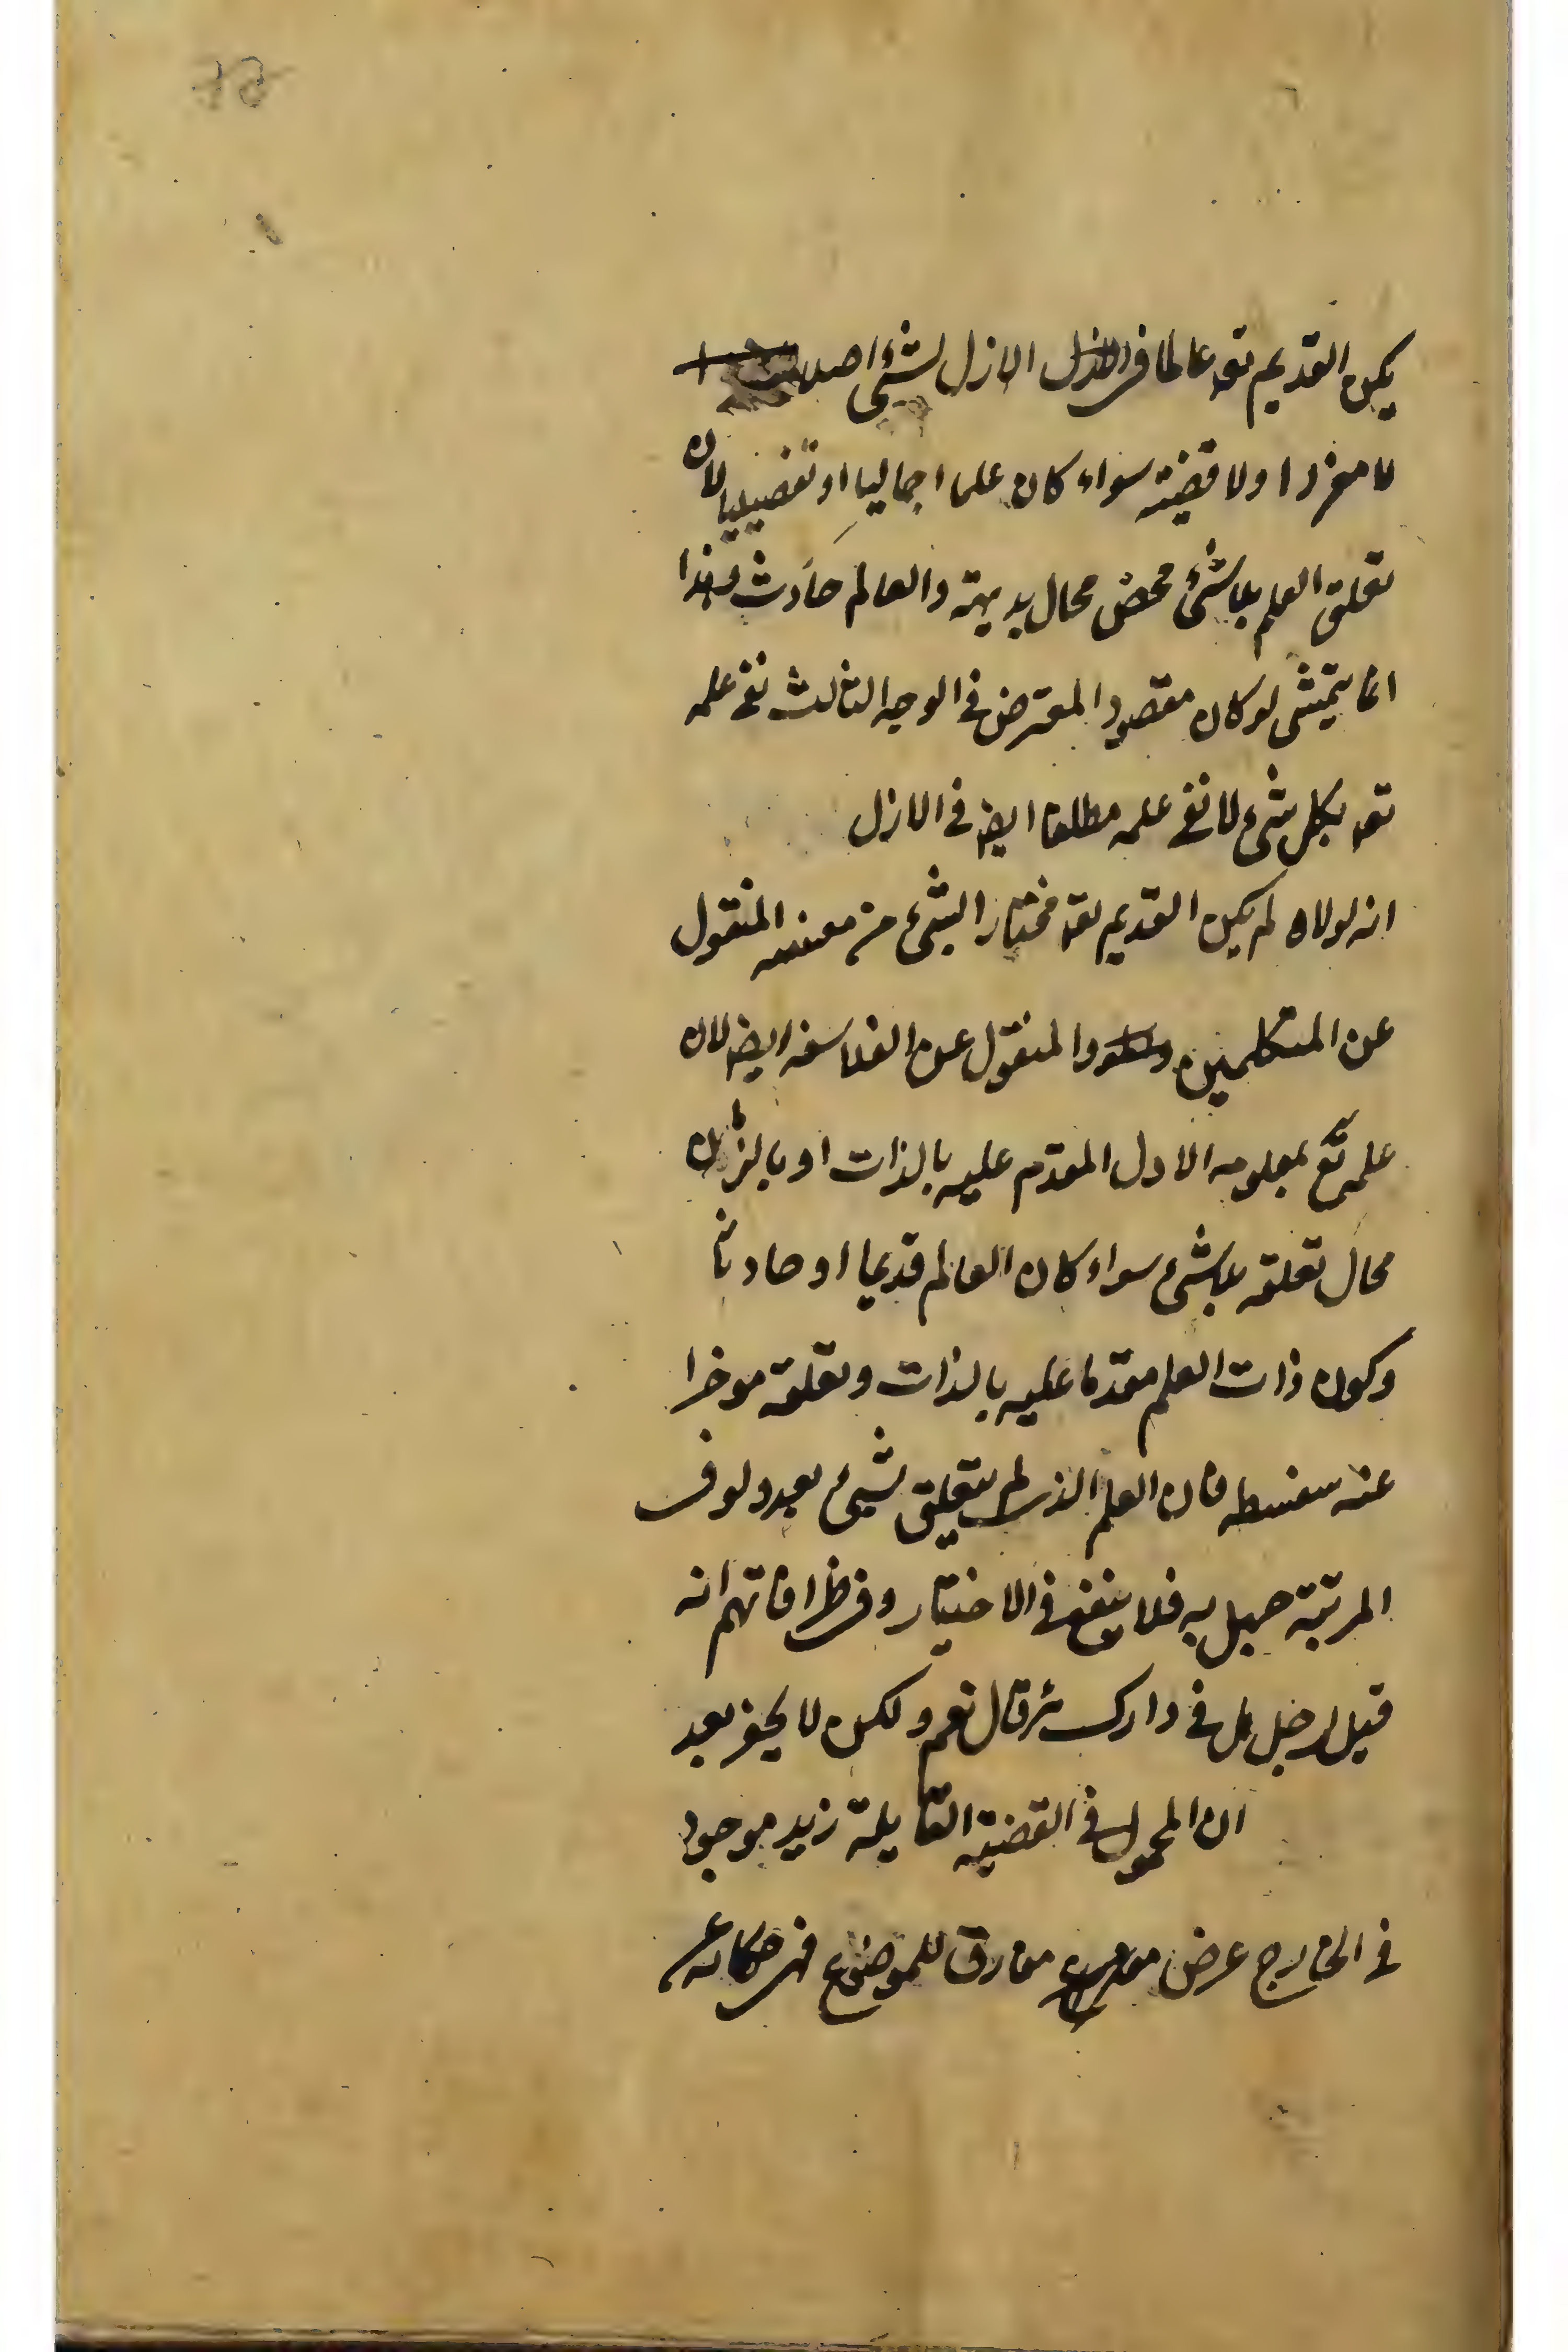 يكن القديم تعه عالما في الازل لشئ اصلا
لا مفردا ولا قضية سواء كان علما اجماليا او تفصيليا لان
تعلق العلم بلا شئ محض محال بديهة والعالم حادث وهذا
انما يتمشى لو كان مقصود المعترض في الوجه الثالث نفي علمه
تعه بكل شئ لا نفي علمه مطلقا ايضا في الازل
انه لولاه لم يكن القديم تعه مختارا لشئ من معنييه المنقول
عن المتكلمين والمنقول عن الفلاسفة ايضا لان
علمه تع بمعلومه الاول المقدم عليه بالذات او بالزمان
محال تعلقه بلا شئ سواء كان العالم قديما او حادثا
وكون ذات العلم مقدما عليه بالذات وتعلقه موخرا
عنه سفسطه فان العلم الذي لم يتعلق لشئ بعد ولو في
المرتبة جهل به فلا ينفع في الاختيار وفي ظرافاتهم انه
قيل لرجل هل في دارك شر قال نعم ولكن لا يجز بعد
ان المحمول في القضية القايلة زيد موجود
في الخارج عرض مفارق للموضوع فهي حكاية عن